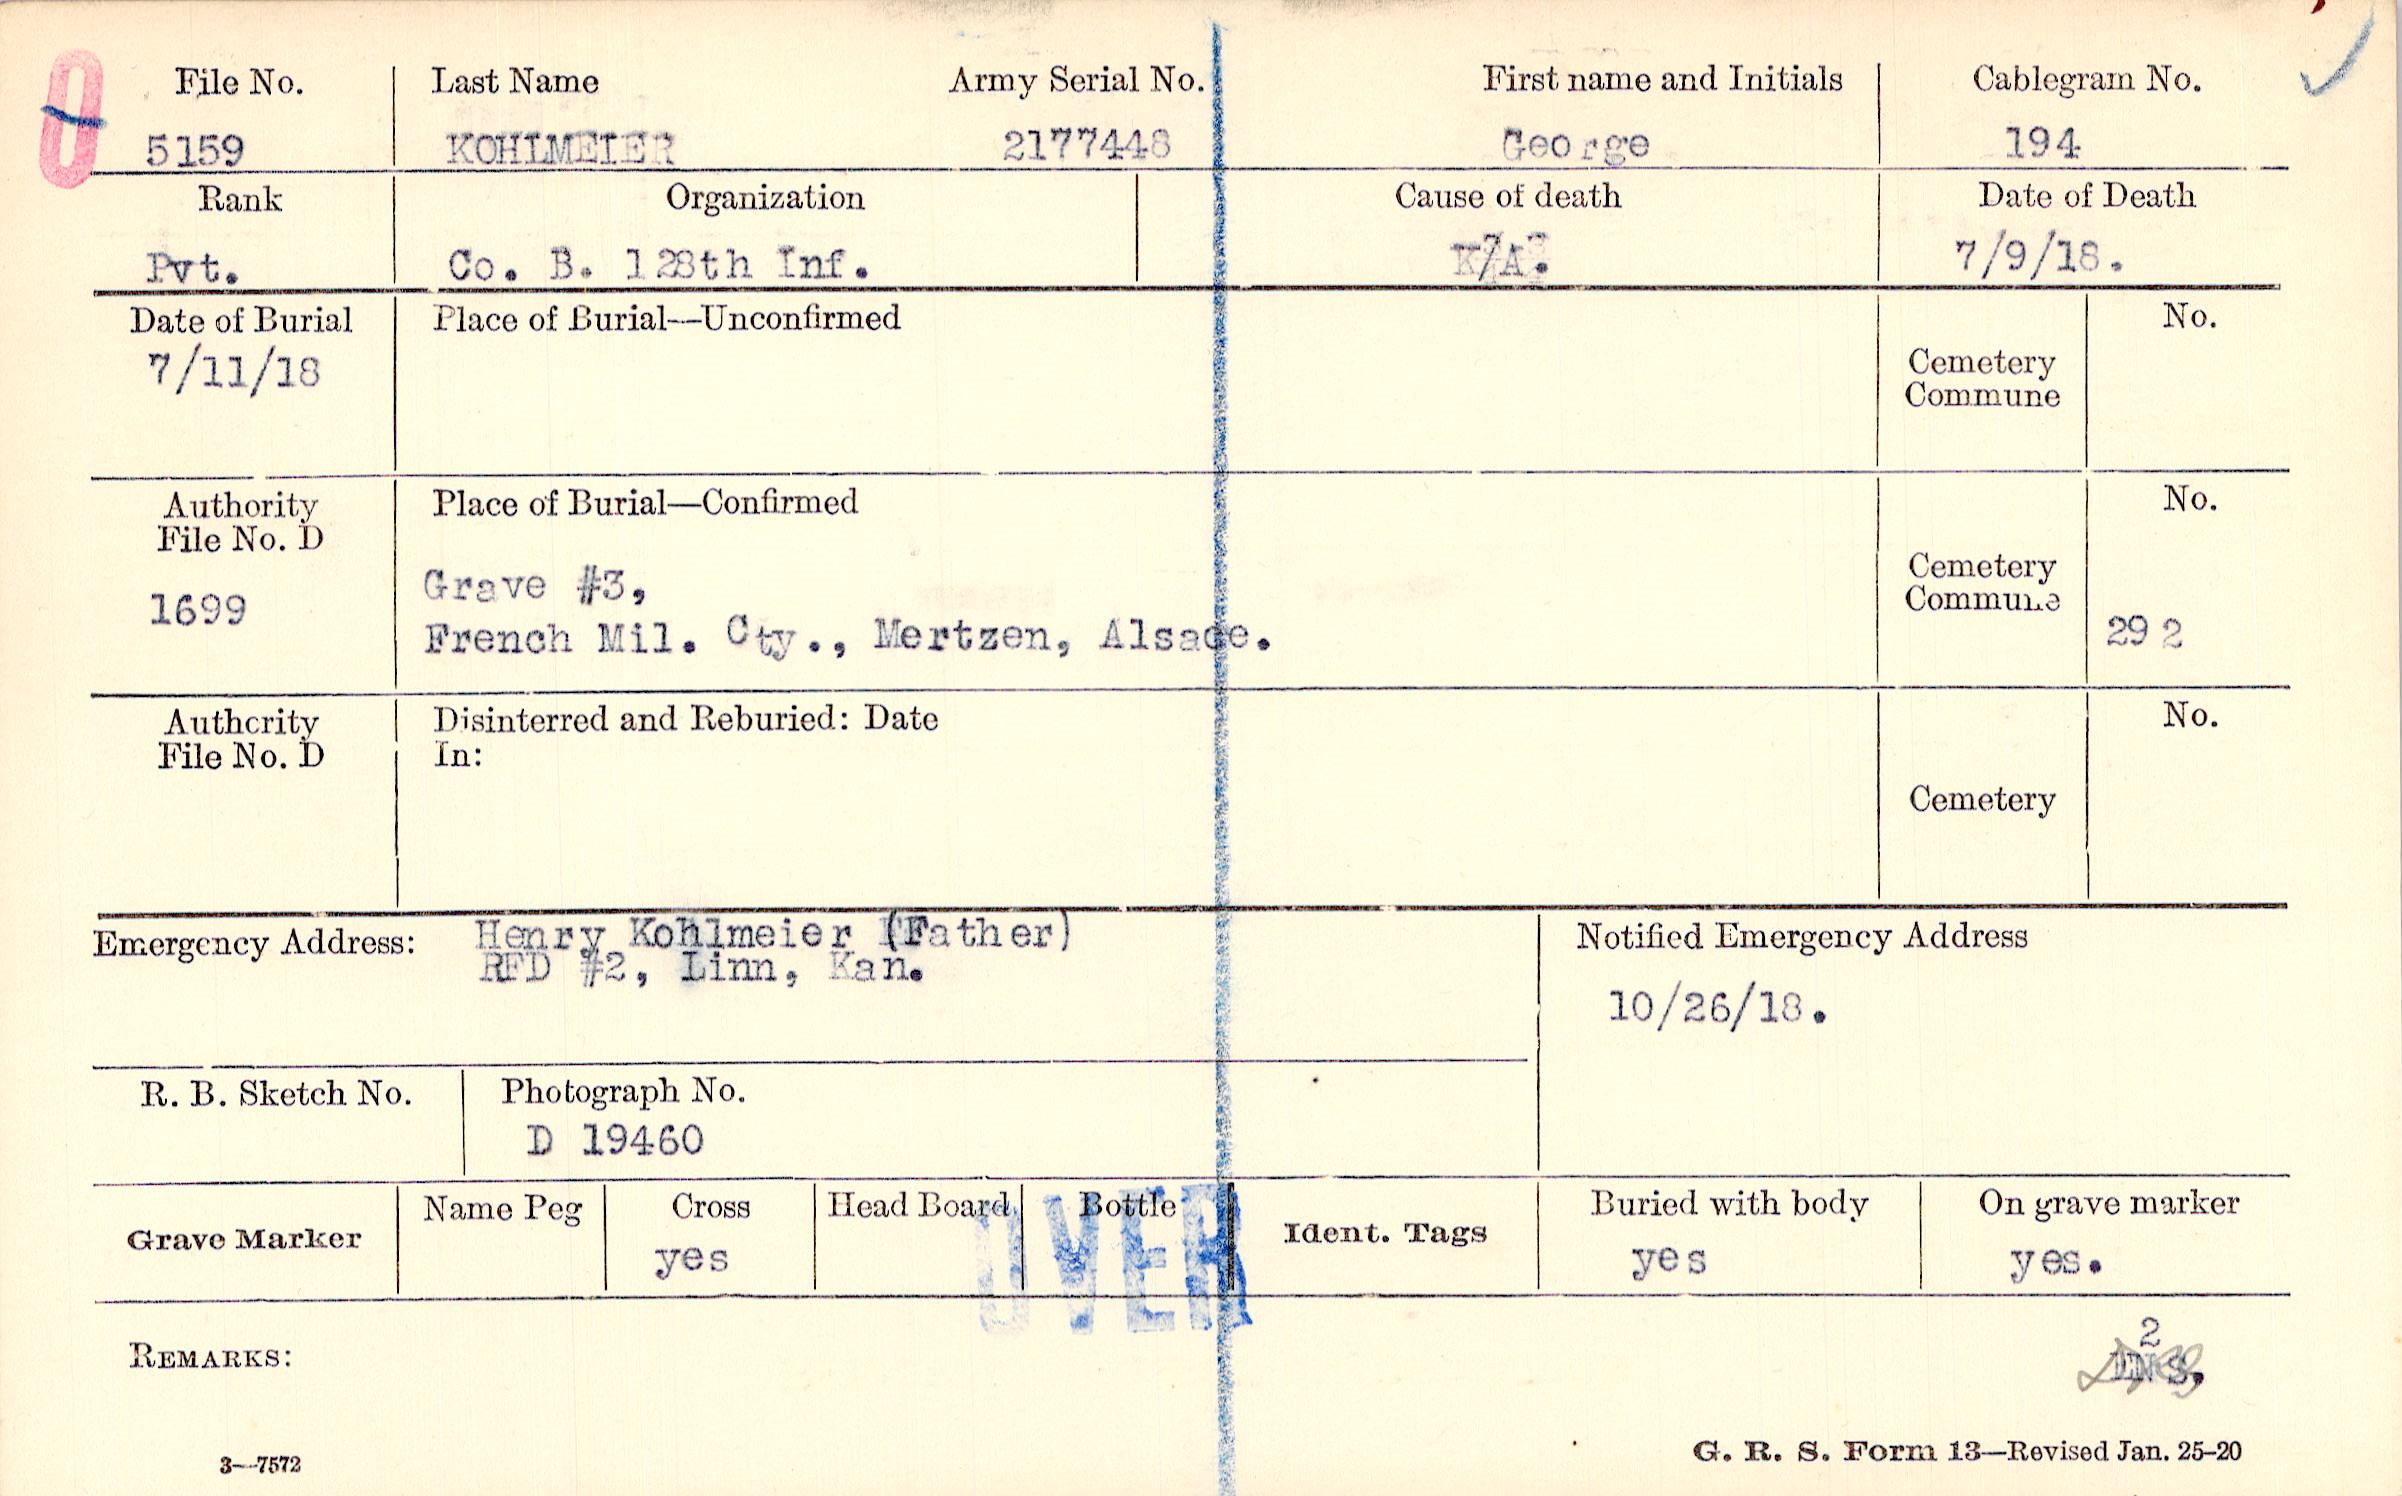 File No. Last Name Army Serial No. First name and Initials Cablegram No.
5159 KOHLMEIER 2177448 George 194
Rank Organization Cause of death Date of Death
Pvt. Co. B. 128th Inf. K/A. 7/9/18.
Date of Burial Place of Burial—Unconfirmed No.
7/11/18
Cemetery
Commune
Authority Place of Burial—Confirmed No.
File No. D
1699
Grave #3,
French Mil. Cty., Mertzen, Alsace.
Cemetery
Commune
292
Authority Disinterred and Reburied: Date No.
File No. D In:
Cemetery
Emergency Address: Henry Kohlmeier (Father)
RFD #2, Linn, Kan.
Notified Emergency Address
10/26/18.
R. B. Sketch No. Photograph No.
D 19460
Grave Marker Name Peg Cross Head Board Bottle Ident. Tags Buried with body On grave marker
yes yes yes.
OVER
REMARKS:
2
3—7572 G. R. S. Form 13—Revised Jan. 25-20